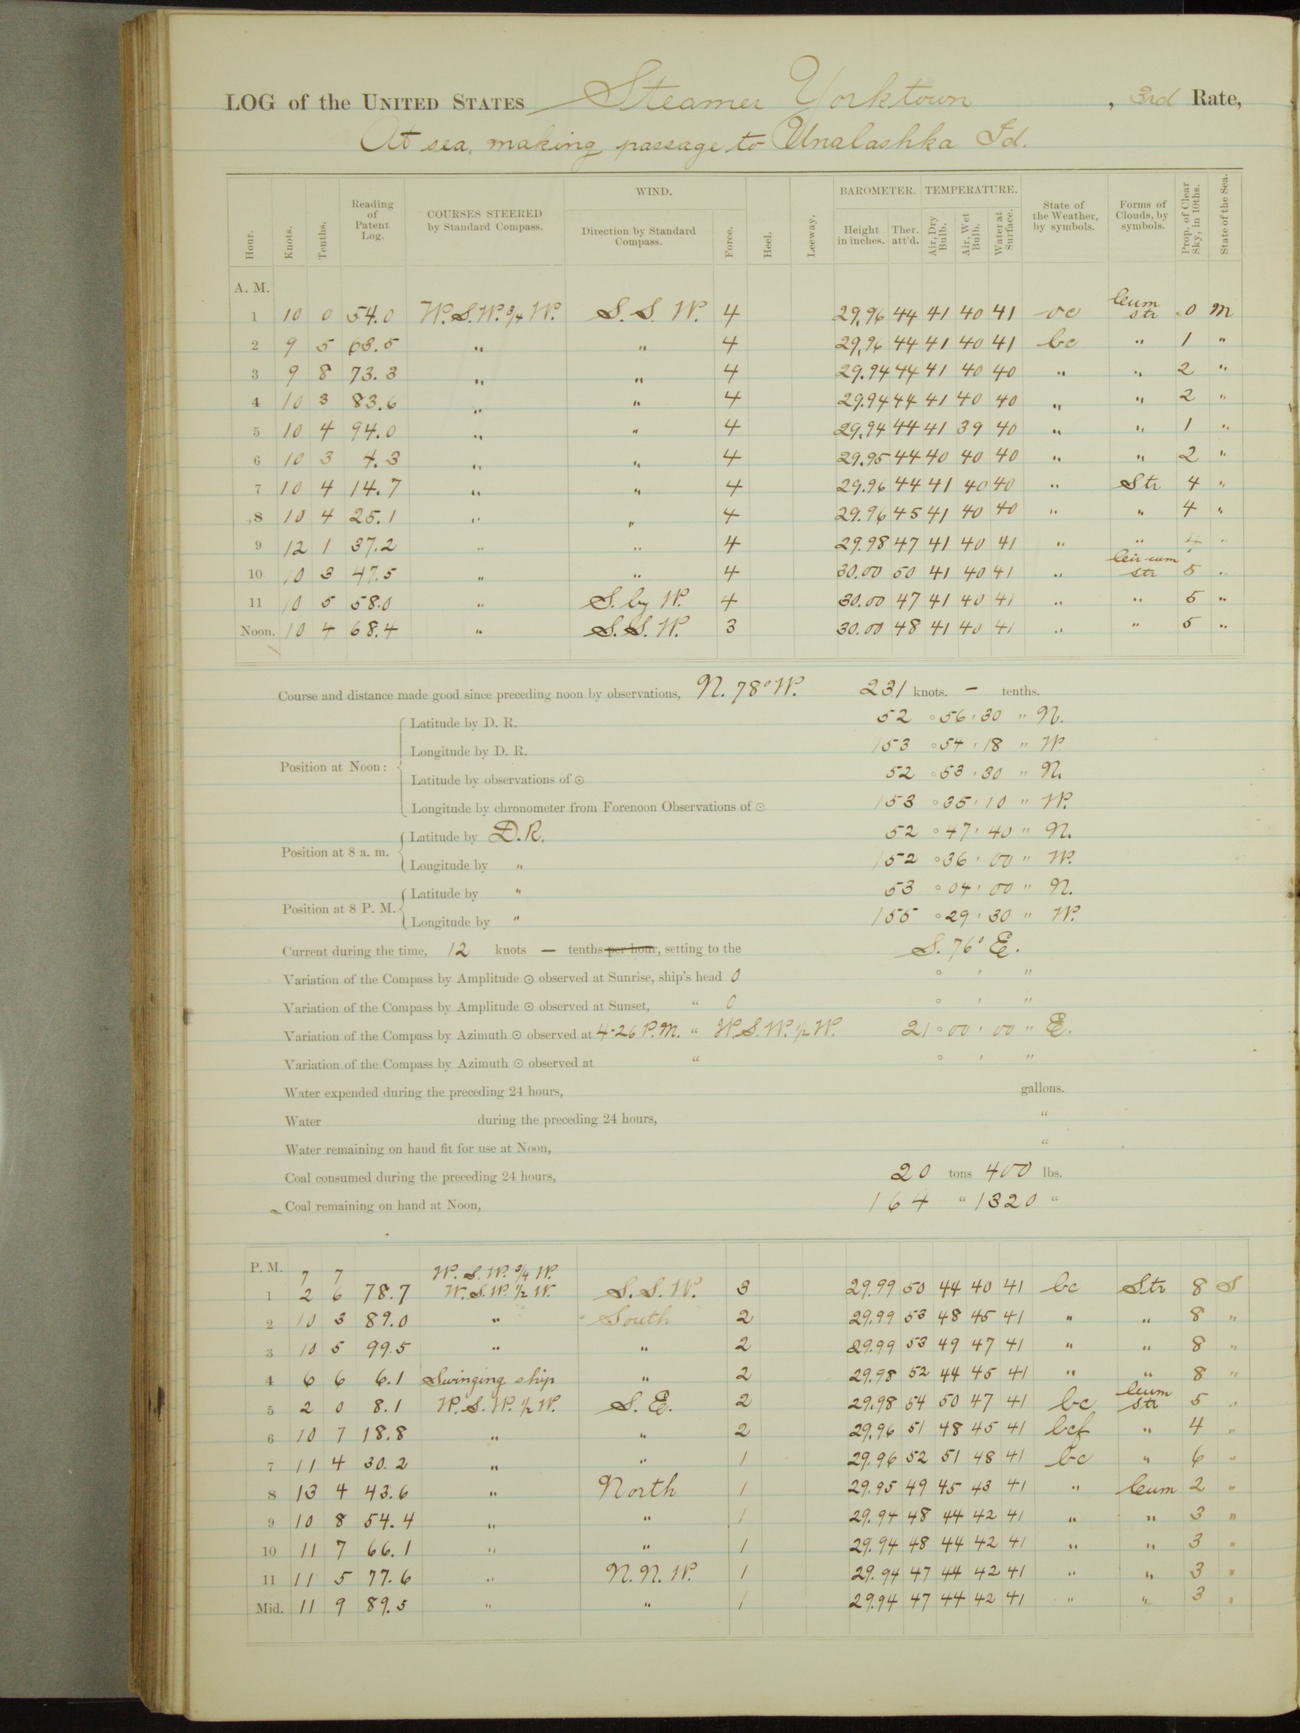 LOG of the UNITED STATES Steamer Yorktown, 3rd Rate,
At sea, making passage to Unalashka Id.
Hour. Knots. Tenths. Reading of Patent Log. COURSES STEERED by Standard Compass. WIND. Direction by Standard Compass. Force. Heel. Leeway. BAROMETER. Height in inches. Ther. att'd. TEMPERATURE. Air, Dry Bulb. Air, Wet Bulb. Water at Surface. State of the Weather, by symbols. Forms of Clouds, by symbols. Prop. of Clear Sky, in 10ths. State of the Sea.
A. M.
1 10 0 54.0 W.S.W.3/4 W. S. S. W. 4 29.96 44 41 40 41 oc Cum str .0 M
2 9 5 68.5 " " 4 29.96 44 41 40 41 bc " 1 "
3 9 8 73.3 " " 4 29.94 44 41 40 40 " " 2 "
4 10 3 83.6 " " 4 29.94 44 41 40 40 " " 2 "
5 10 4 94.0 " " 4 29.94 44 41 39 40 " " 1 "
6 10 3 4.3 " " 4 29.95 44 40 40 40 " " 2 "
7 10 4 14.7 " " 4 29.96 44 41 40 40 " Str 4 "
8 10 4 25.1 " " 4 29.96 45 41 40 40 " " 4 "
9 12 1 37.2 " " 4 29.98 47 41 40 41 " " 4 "
10 10 3 47.5 " " 4 30.00 50 41 40 41 " Cir-cum str 5 "
11 10 5 58.0 " S. by W. 4 30.00 47 41 40 41 " " 5 "
Noon. 10 4 68.4 " S.S. W. 3 30.00 48 41 40 41 " " 5 "
Course and distance made good since preceding noon by observations, N. 78° W. 231 knots. — tenths.
Position at Noon: Latitude by D. R. 52 ° 56 ' 30 " N.
Longitude by D. R. 153 ° 54 ' 18 " W
Latitude by observations of ☉ 52 ° 53 ' 30 " N.
Longitude by chronometer from Forenoon Observations of ☉ 153 ° 35 ' 10 " W.
Position at 8 a. m. Latitude by D.R. 52 ° 47 ' 40 " N.
Longitude by " 152 ° 36 ' 00 " W.
Position at 8 P. M. Latitude by " 53 ° 04 ' 00 " N.
Longitude by " 155 ° 29 ' 30 " W.
Current during the time, 12 knots — tenths per hour, setting to the S. 76° E.
Variation of the Compass by Amplitude ☉ observed at Sunrise, ship's head 0 ° ' "
Variation of the Compass by Amplitude ☉ observed at Sunset, " 0 ° ' "
Variation of the Compass by Azimuth ☉ observed at 4-26 P.M. " W.S.W.1/2 W. 21 ° 00 ' 00 " E.
Variation of the Compass by Azimuth ☉ observed at " ° ' "
Water expended during the preceding 24 hours, gallons.
Water during the preceding 24 hours, "
Water remaining on hand fit for use at Noon, "
Coal consumed during the preceding 24 hours, 20 tons 400 lbs.
Coal remaining on hand at Noon, 164 " 1320 "
P. M. 7 7 W. S. W. 3/4 W.
1 2 6 78.7 W. S. W. 1/2 W. S. S. W. 3 29.99 50 44 40 41 bc Str 8 S
2 10 3 89.0 " South 2 29.99 53 48 45 41 " " 8 "
3 10 5 99.5 " " 2 29.99 53 49 47 41 " " 8 "
4 6 6 6.1 Swinging ship " 2 29.98 52 44 45 41 " " 8 "
5 2 0 8.1 W. S. W. 1/2 W. S. E. 2 29.98 54 50 47 41 bc Cum str 5 "
6 10 7 18.8 " " 2 29.96 51 48 45 41 bcf " 4 "
7 11 4 30.2 " " 1 29.96 52 51 48 41 bc " 6 "
8 13 4 43.6 " North 1 29.95 49 45 43 41 " Cum 2 "
9 10 8 54.4 " " 1 29.94 48 44 42 41 " " 3 "
10 11 7 66.1 " " 1 29.94 48 44 42 41 " " 3 "
11 11 5 77.6 " N. N. W. 1 29.94 47 44 42 41 " " 3 "
Mid. 11 9 89.5 " " 1 29.94 47 44 42 41 " " 3 "